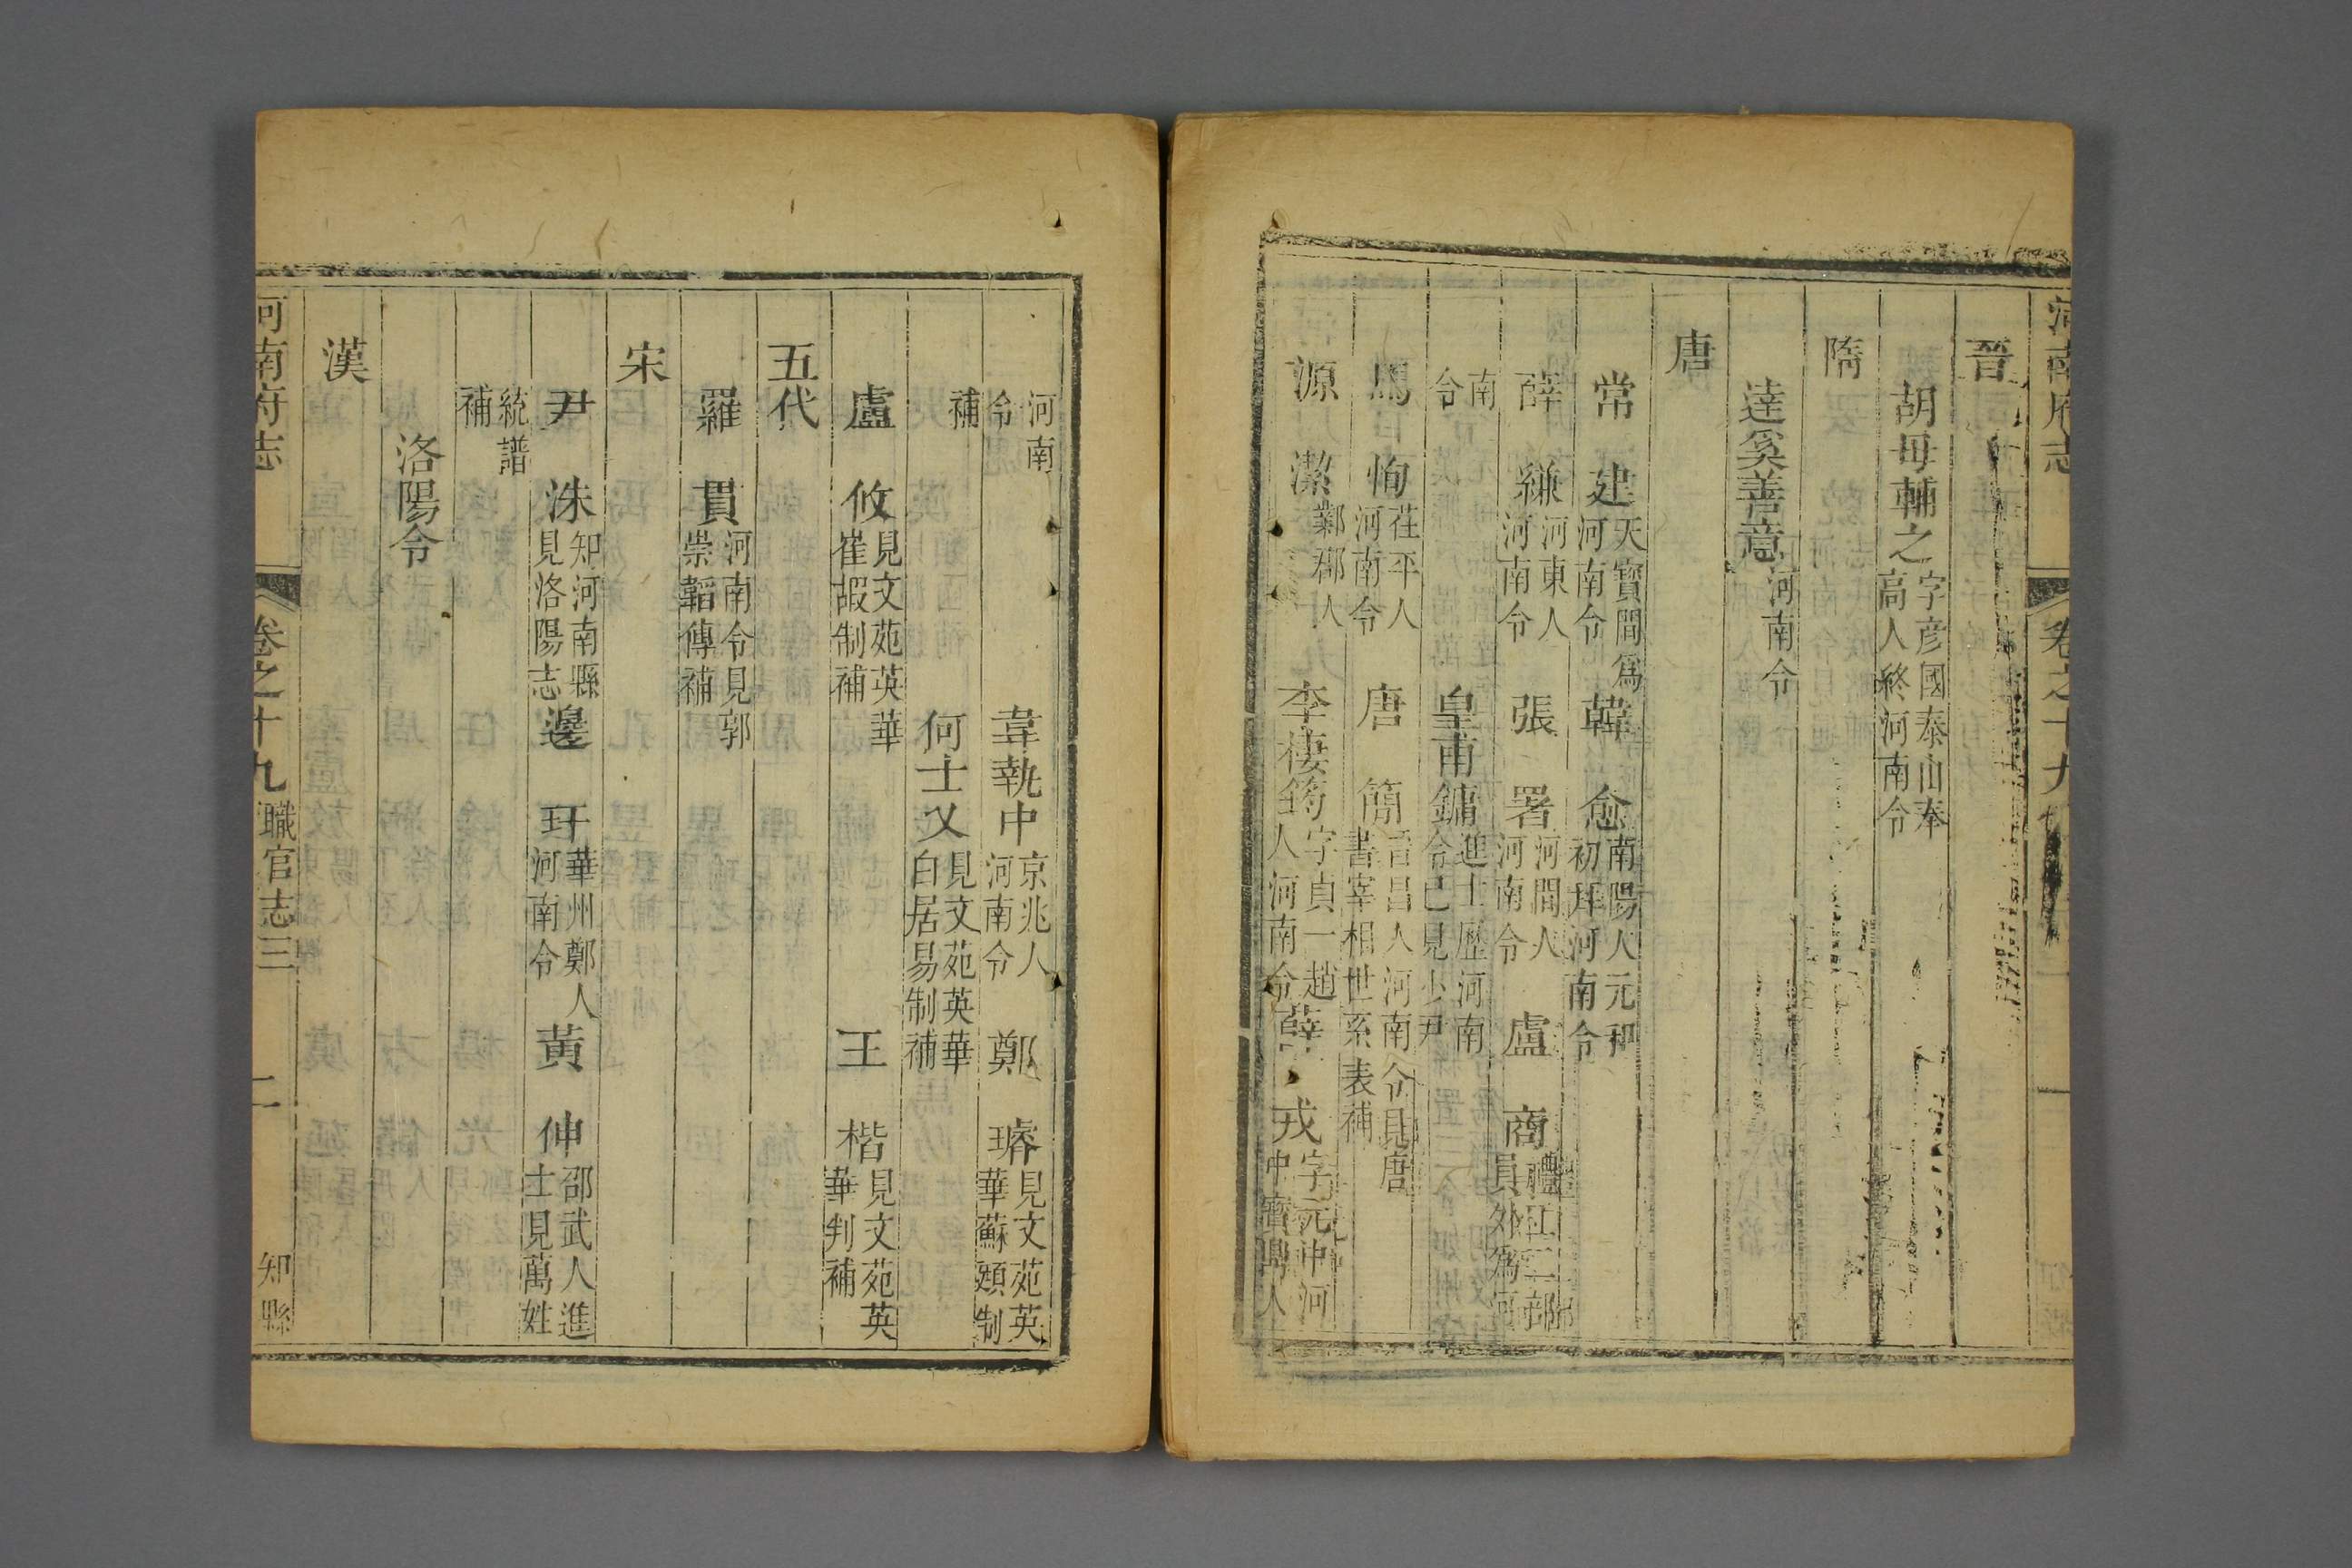 河南府志　卷之十九　一
晉
胡母輔之字彥國泰山奉高人終河南令
隋
達奚善意河南令
唐
常建天寶間爲河南令　韓愈南陽人元和初拜河南令
薛縑河東人河南令　張署河間人河南令　盧商禮工二部員外爲河
南令　皇甫鏞進士歷河南令已見少尹
馬恂茌平人河南令　唐簡晉昌人河南令見唐書宰相世系表補
源潔鄴郡人　李棲筠字貞一趙人河南令　薛戎字元冲河中寶鼎人
河南令　韋執中京兆人河南令　鄭璿見文苑英華蘇頲制
補　何士乂見文苑英華白居易制補
盧攸見文苑英華崔嘏制補　王楷見文苑英華判補
五代
羅貫河南令見郭崇韜傳補
宋
尹洙知河南縣見洛陽志　邊玕華州鄭人河南令　黃伸邵武人進士見萬姓
統譜補
洛陽令
漢
河南府志　卷之十九　職官志三　二　知縣